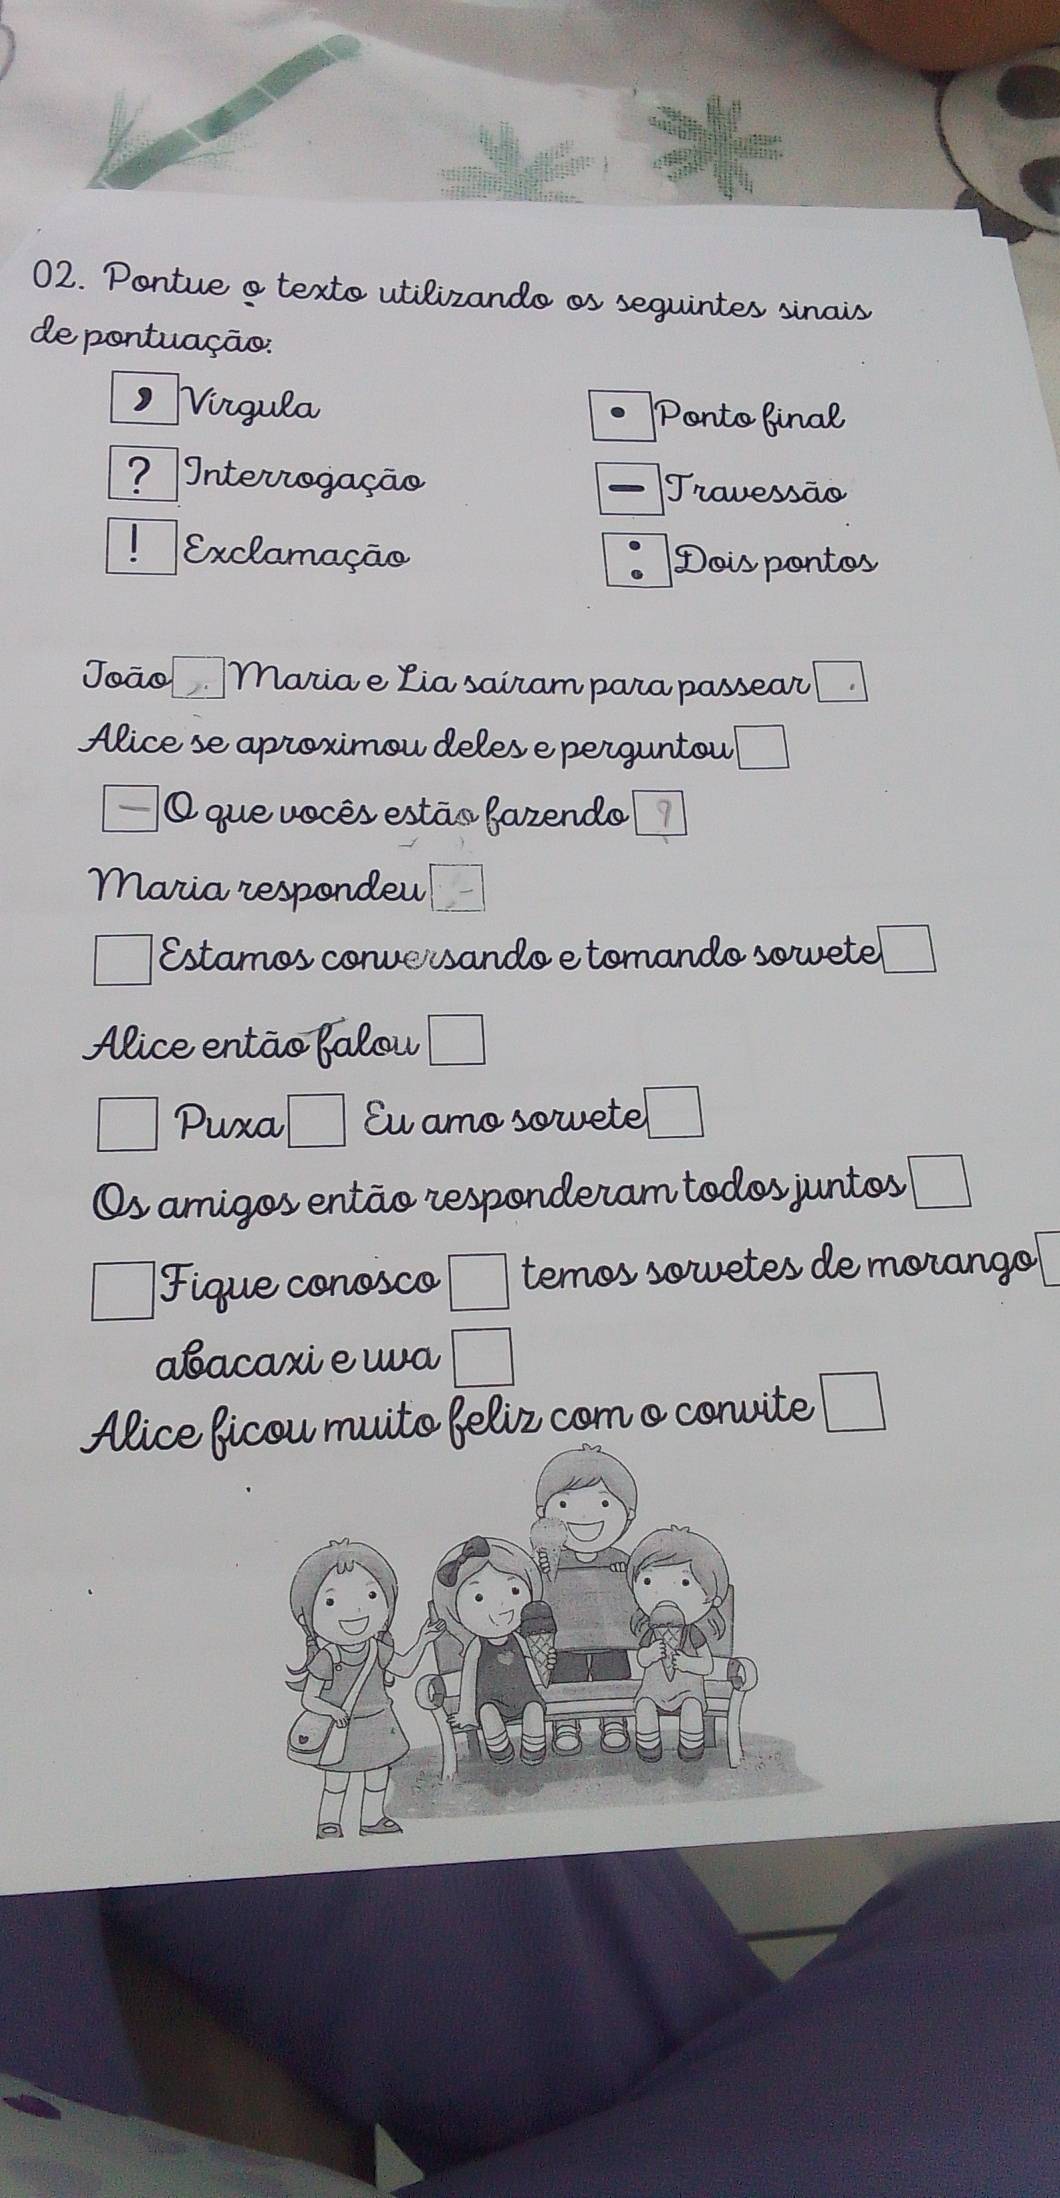 02. Pontue o texto utilizando os seguintes sinais
de pontuação:
, Vírgula
. Ponto final
? Interrogação
— Travessão
! Exclamação
: Dois pontos
João , Maria e Lia saíram para passear .
Alice se aproximou deles e perguntou
— O que vocês estão fazendo ?
Maria respondeu -
Estamos conversando e tomando sorvete
Alice então falou
Puxa Eu amo sorvete
Os amigos então responderam todos juntos
Fique conosco temos sorvetes de morango
abacaxi e uva
Alice ficou muito feliz com o convite